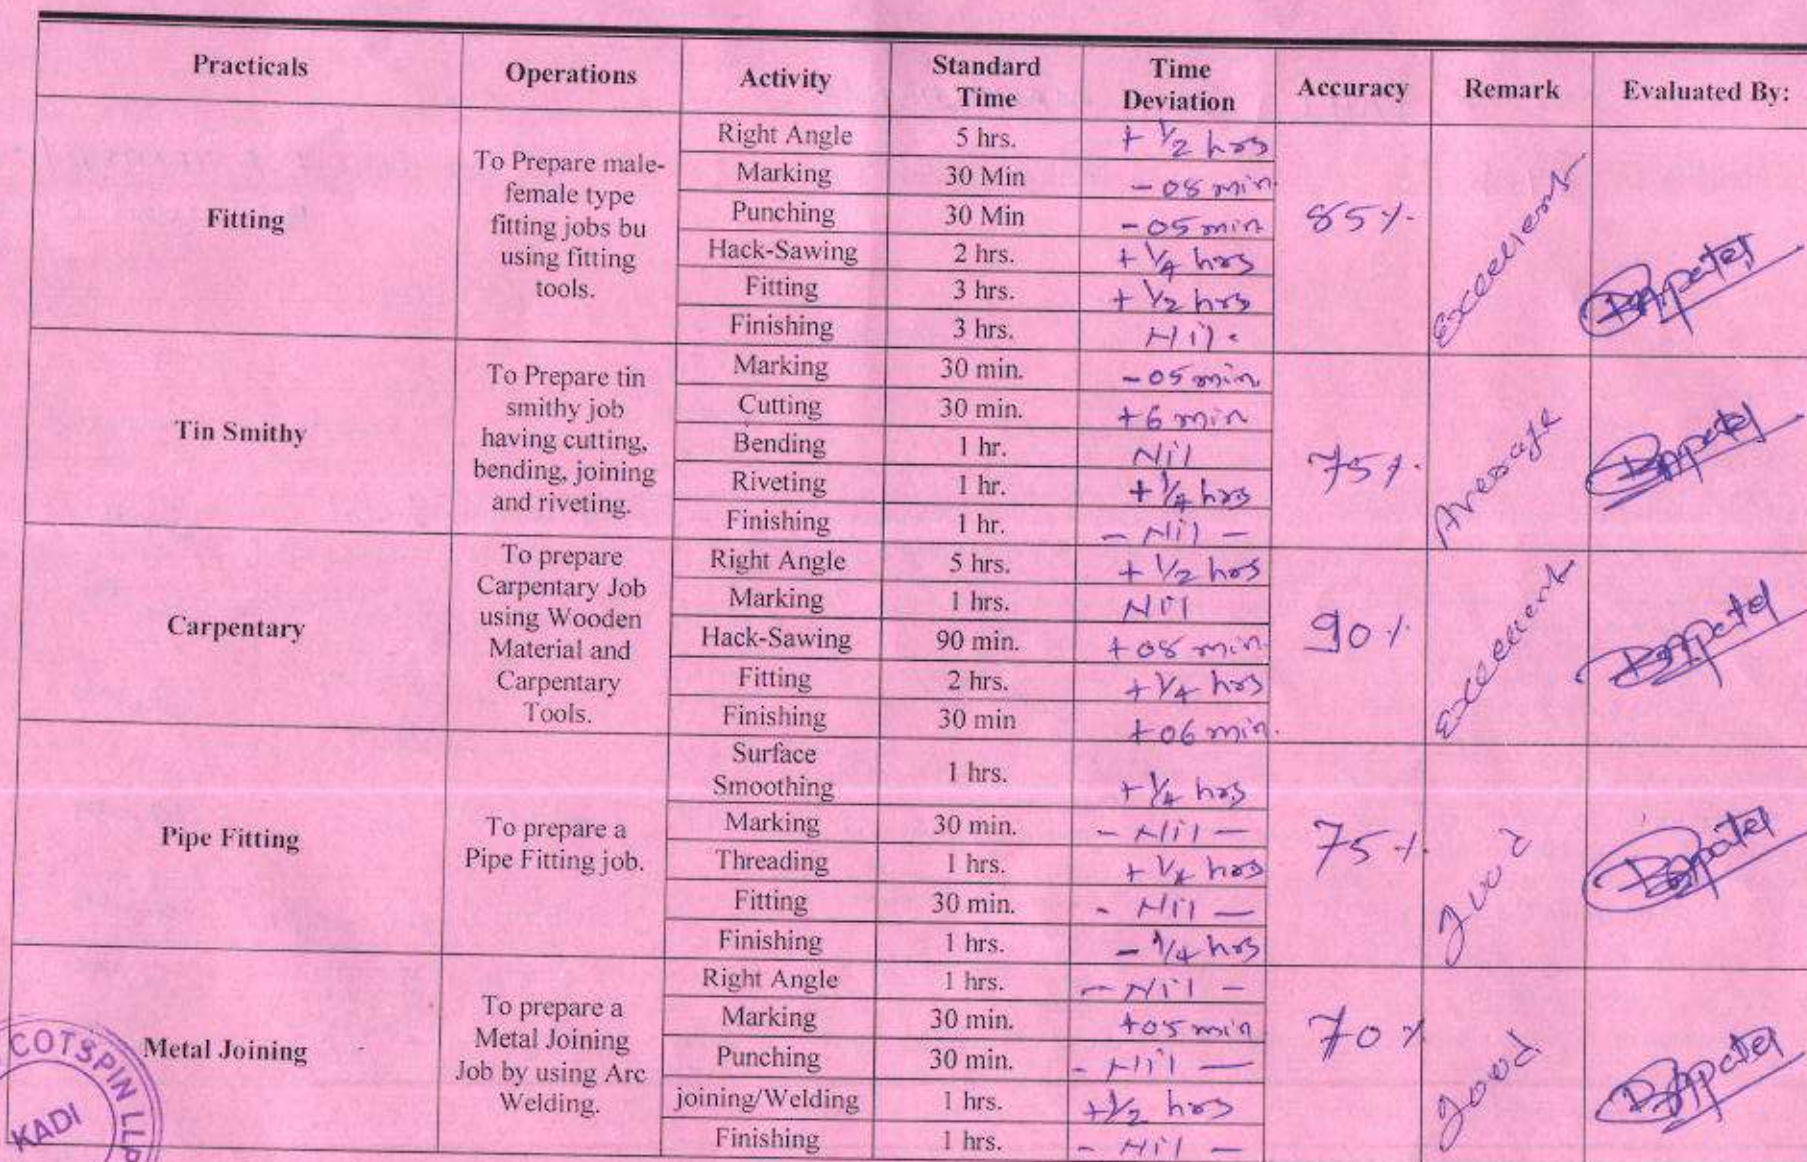 Practicals Operations Activity Standard Time Time Deviation Accuracy Remark Evaluated By:
Fitting
To Prepare male-
female type
fitting jobs bu
using fitting
tools.
Right Angle 5 hrs. + 1/2 hrs
Marking 30 Min - 08 min.
Punching 30 Min - 05 min
Hack-Sawing 2 hrs. + 1/4 hrs
Fitting 3 hrs. + 1/2 hrs
Finishing 3 hrs. Nil.
85%
Excellent
Tin Smithy
To Prepare tin
smithy job
having cutting,
bending, joining
and riveting.
Marking 30 min. - 05 min.
Cutting 30 min. +6 min
Bending 1 hr. Nil
Riveting 1 hr. + 1/4 hrs
Finishing 1 hr. - Nil -
75%
Average
Carpentary
To prepare
Carpentary Job
using Wooden
Material and
Carpentary
Tools.
Right Angle 5 hrs. + 1/2 hrs
Marking 1 hrs. Nil
Hack-Sawing 90 min. +08 min
Fitting 2 hrs. + 1/4 hrs
Finishing 30 min +06 min.
90%
Excellent
Pipe Fitting
To prepare a
Pipe Fitting job.
Surface
Smoothing 1 hrs. + 1/4 hrs
Marking 30 min. - Nil -
Threading 1 hrs. + 1/4 hrs
Fitting 30 min. - Nil -
Finishing 1 hrs. - 1/4 hrs
75%
good
Metal Joining
To prepare a
Metal Joining
Job by using Arc
Welding.
Right Angle 1 hrs. - Nil -
Marking 30 min. +05 min
Punching 30 min. - Nil -
joining/Welding 1 hrs. +1/2 hrs
Finishing 1 hrs. - Nil -
70%
good
COTSPIN LLP
KADI